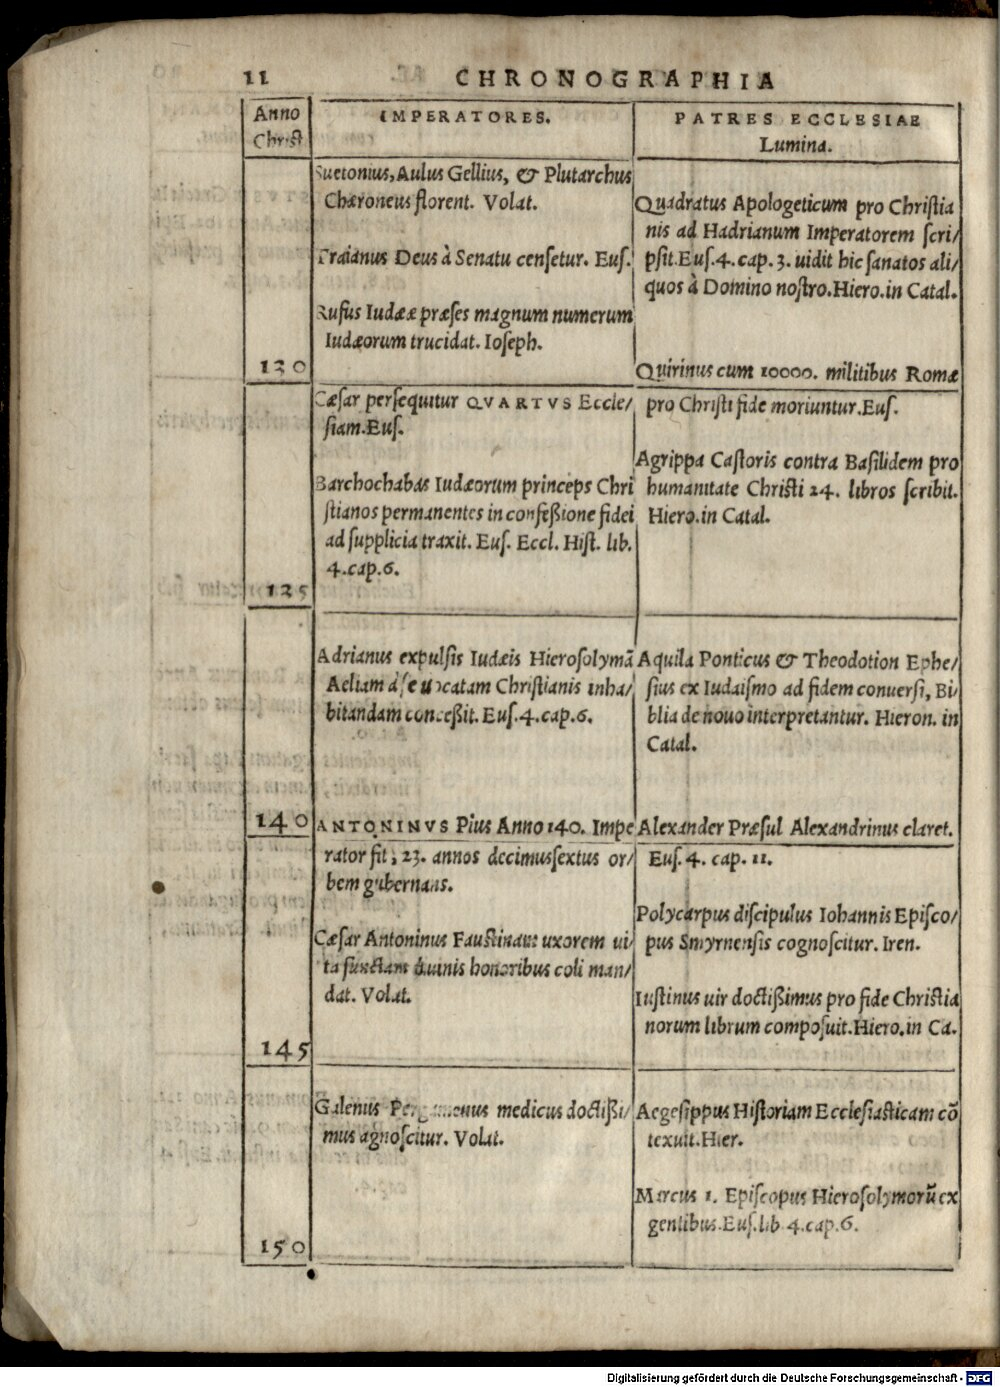 11 CHRONOGRAPHIA
Anno
Christi
IMPERATORES.
PATRES ECCLESIAE
Lumina.
Suetonius, Aulus Gellius, & Plutarchus
Chæroneus florent. Volat.
Traianus Deus à Senatu censetur. Eus.
Rufus Iudææ præses magnum numerum
Iudæorum trucidat. Ioseph.
130
Quadratus Apologeticum pro Christia
nis ad Hadrianum Imperatorem scri/
psit. Eus. 4. cap. 3. uidit hic sanatos ali/
quos à Domino nostro. Hiero. in Catal.
Quirinus cum 10000. militibus Romæ
Cæsar persequitur QVARTVS Eccle/
siam. Eus.
Barchochabas Iudæorum princeps Chri
stianos permanentes in confeßione fidei
ad supplicia traxit. Eus. Eccl. Hist. lib.
4. cap. 6.
pro Christi fide moriuntur. Eus.
Agrippa Castoris contra Basilidem pro
humanitate Christi 24. libros scribit.
Hiero. in Catal.
Adrianus expulsis Iudæis Hierosolymã
Aeliam à se uocatam Christianis inha/
bitandam conceßit. Eus. 4. cap. 6.
140
ANTONINVS Pius Anno 140. Impe
Aquila Ponticus & Theodotion Ephe/
sius ex Iudaismo ad fidem conuersi, Bi/
blia de nouo interpretantur. Hieron. in
Catal.
Alexander Præsul Alexandrinus claret.
rator fit, 23. annos decimussextus or/
bem gubernans.
Cæsar Antoninus Faustinam uxorem ui/
ta functam diuinis honoribus coli man/
dat. Volat.
145
Eus. 4. cap. 11.
Polycarpus discipulus Iohannis Episco/
pus Smyrnensis cognoscitur. Iren.
Iustinus uir doctißimus pro fide Christia
norum librum composuit. Hiero. in Ca.
Galenus Pergamenus medicus doctißi/
mus agnoscitur. Volat.
150
Aegesippus Historiam Ecclesiasticam cõ
texuit. Hier.
Marcus 1. Episcopus Hierosolymorũ ex
gentibus. Eus. lib 4. cap. 6.
Digitalisierung gefördert durch die Deutsche Forschungsgemeinschaft - DFG